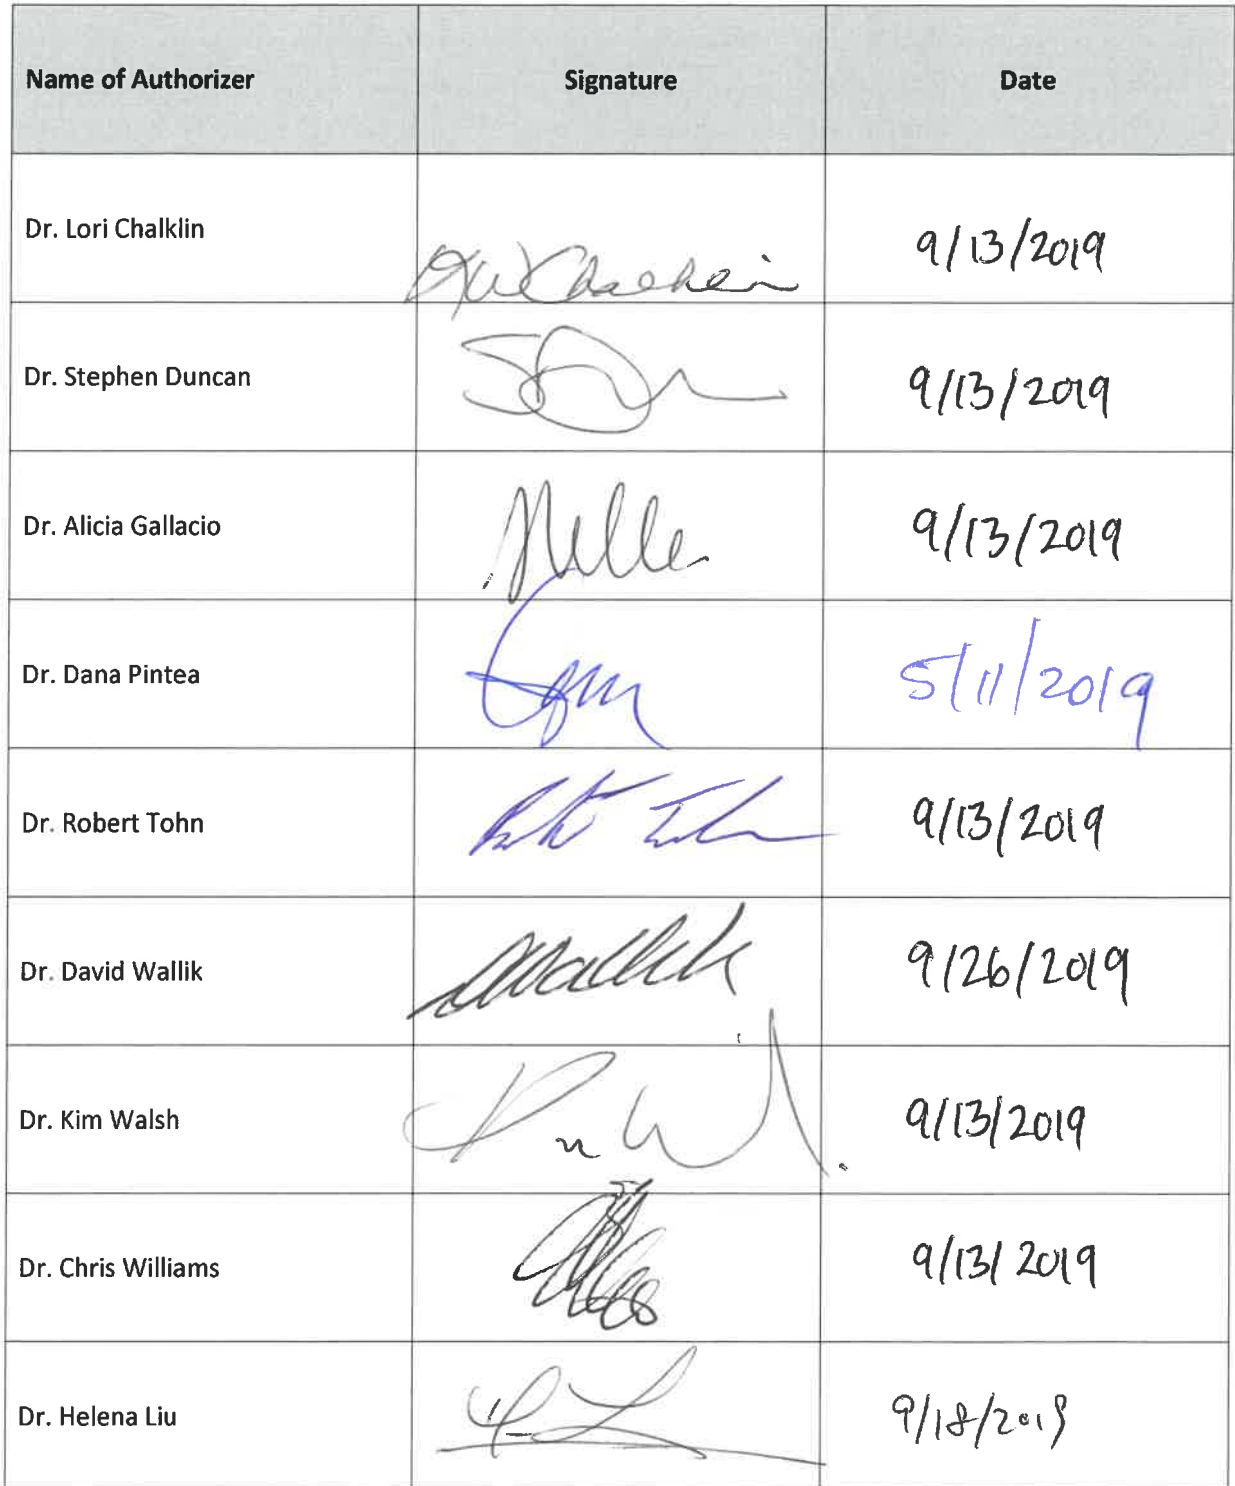 Name of Authorizer Signature Date
Dr. Lori Chalklin 9/13/2019
Dr. Stephen Duncan 9/13/2019
Dr. Alicia Gallacio 9/13/2019
Dr. Dana Pintea 5/11/2019
Dr. Robert Tohn 9/13/2019
Dr. David Wallik 9/26/2019
Dr. Kim Walsh 9/13/2019
Dr. Chris Williams 9/13/2019
Dr. Helena Liu 9/18/2019